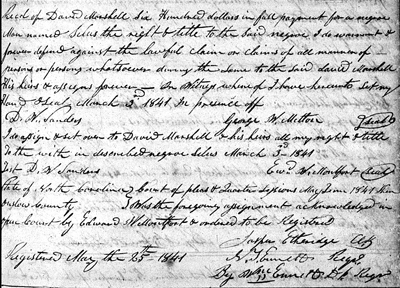 Recd of David Marshell Six Hundred dollars in full payment for a negroe
Man named Selus the right & title to the Said negroe I do warrent &
forever defend against the lawful claim or claims of all manner of
person or persons whatsoever diving the Same to the Said David Marshell
His heirs & assigns forever — In Witness whereof I have hereunto Set my
Hand & Seal March 3d 1841 In presence off
D. W. Sanders George W. Mitton (Seal)
I assign & set over to David Marshell & his heirs all my right & title
To the with in described negroe Selus March 3rd 1841
Test D. W. Sanders Edwd W. Montfort Seal
State of North Carolina Court of pleas & Quarter Sessions May Term 1841
Onslow County Was the foregoing assignment acknowledged in
open Court by Edward W Montfort & ordered to be Registered
Jasper Etheridge Clk
Registered May the 25th 1841 Ennett Regr
By Ennett D. Regr